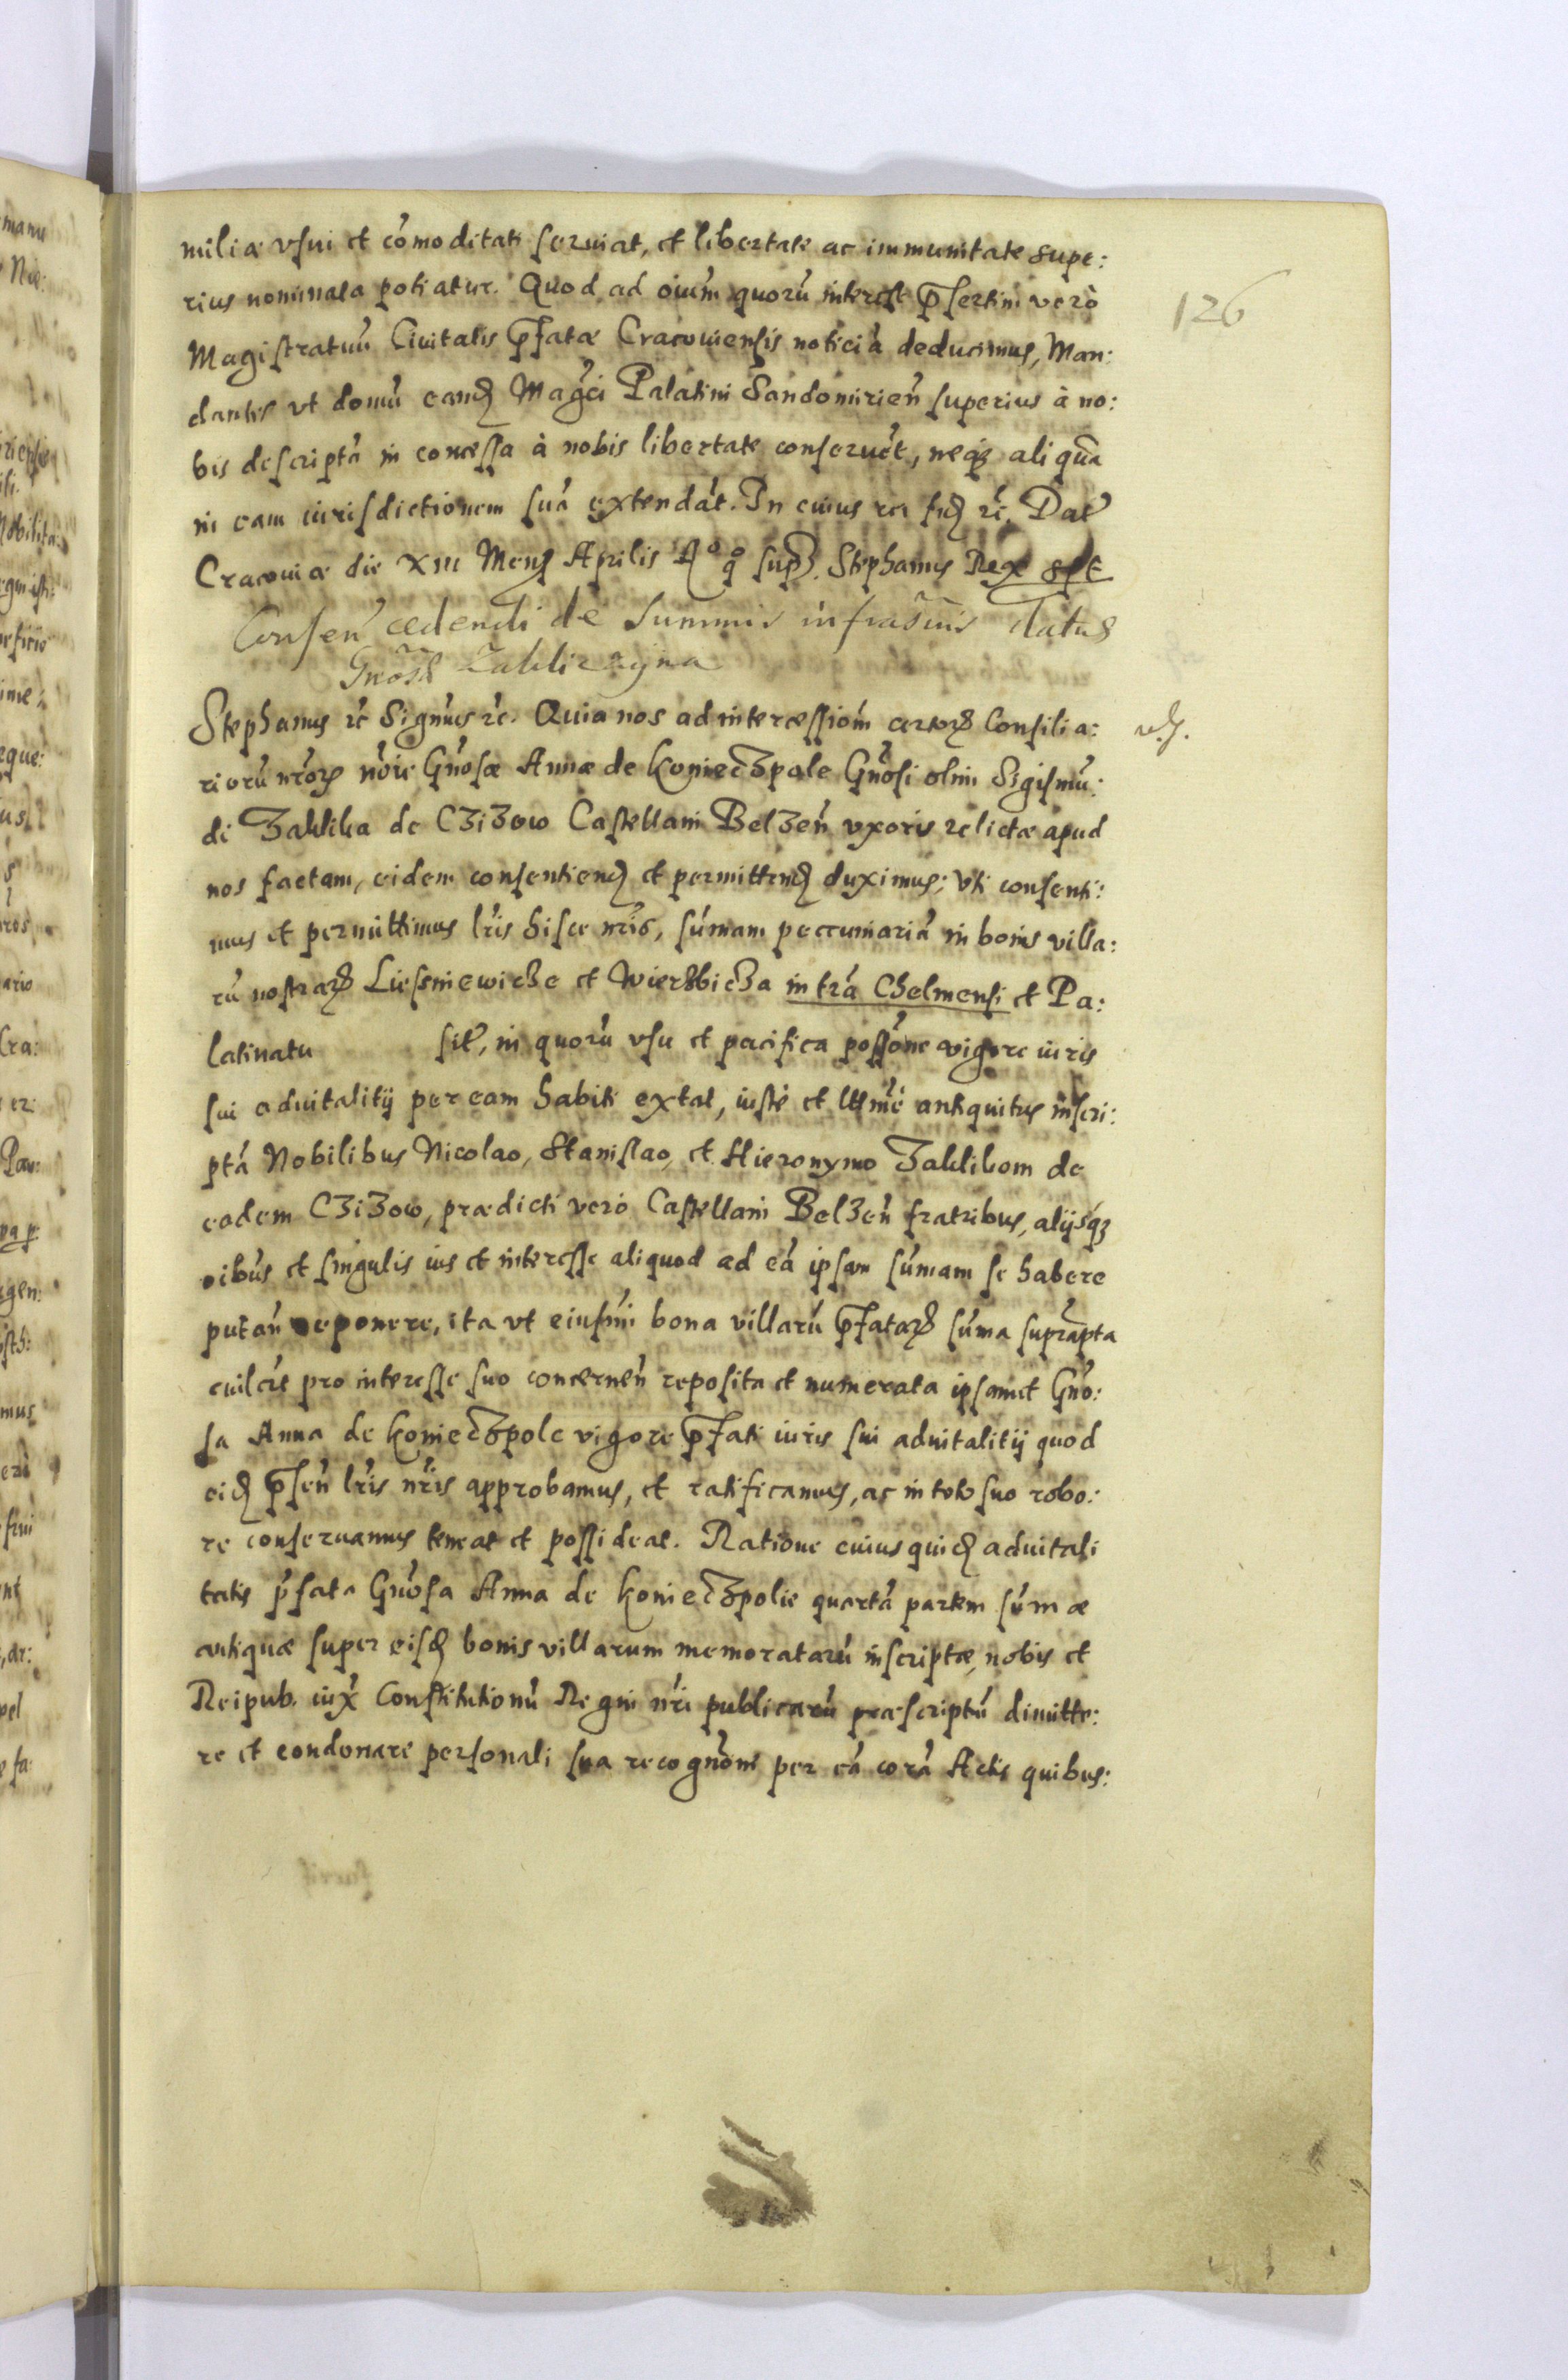 126
miliæ vsui et cõmoditati seruiat, et libertate ac immunitate supe:
rius nominata potiatur. Quod ad oium quorũ interest p̃sertim verò
Magistratuũ Ciuitatis p̃fatæ Cracouiensis noticiã deducimus, Man:
dantes vt domũ eand Mag̃ci Palatini Sandomirieñ superius à no:
bis descriptã in concessa à nobis libertate conseruẽt, neqз aliquã
in eam iurisdictionem suã extendãt. In cuius rei fid rc̃. Dat̃
Cracouiæ die XIII Mens Aprilis Aº qº sup. Stephanus Rex sst
Conseñ cedendi de summis infrãsc̃is datus
Gnõsæ Zakliczyna
Stephanus rc̃ Signũs rc̃. Quia nos ad intercessioñ certorꝝ Consilia:
v.s.
riorũ nr̃orꝝ nõie Gñosæ Annæ de Konieczpole Gñosi olim Sigismũ:
di Zaklika de Czizow Castellani Belzeñ vxoris relictæ apud
nos factam, eidem consentiend et permittend duximus; Vti consenti:
mus et permittimus lr̃is hisce nr̃is, sum̃am pecuniariã in bonis villa:
rũ nostrarꝝ Liesniewicze et Wierzbicza in trã Chelmensi et Pa:
latinatu sit̃, in quorũ vsu et pacifica possõne vigore iuris
sui aduitalitij per eam habiti extat, iustè et lt̃tmè antiquitus inscri:
ptã Nobilibus Nicolao, Stanislao, et Hieronymo Zaklikom de
eadem Czizow, prædicti verò Castellani Belzeñ fratribus, alijsqз
oibũs et singulis ius et interesse aliquod ad eã ipsam sum̃am se habere
putañ reponere, ita vt eiusm̃i bona villarũ p̃fatarꝝ sum̃a suprãpta
cuilibet pro interesse suo concerneñ reposita et numerata ipsamet Gño:
sa Anna de Konieczpole vigore p̃fati iuris sui aduitalitij quod
eid p̃señ lr̃is nr̃is approbamus, et ratificamus, ac in toto suo robo:
re conseruamus teneat et possideat. Ratione cuius quid aduitali
tatis p̃fata Gñosa Anna de Konieczpolie quartã partem sum̃æ
antiquæ super eisd bonis villarum memoratarũ inscriptæ, nobis et
Reipub. iux̃ Constitutionũ Regni nr̃i publicarũ præscriptũ dimitte:
re et condonare personali sua recognõne per eã corã Actis quibus: